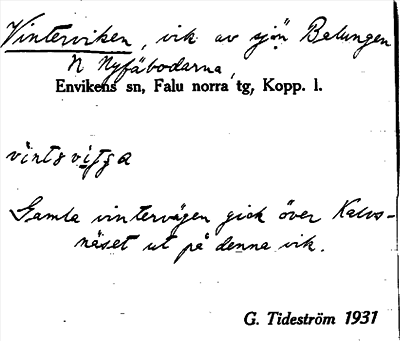 Vinterviken, vik av sjön Balungen
N Nyfäbodarna,
Envikens sn, Falu norra tg, Kopp. l.
Gamla vintervägen gick över Kalvs-
näset ut på denna vik.
G. Tideström 1931